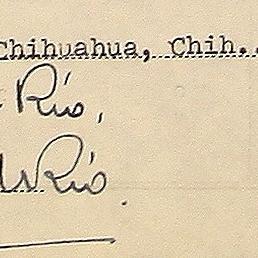 Chihuahua, Chih..
Río,
Río.